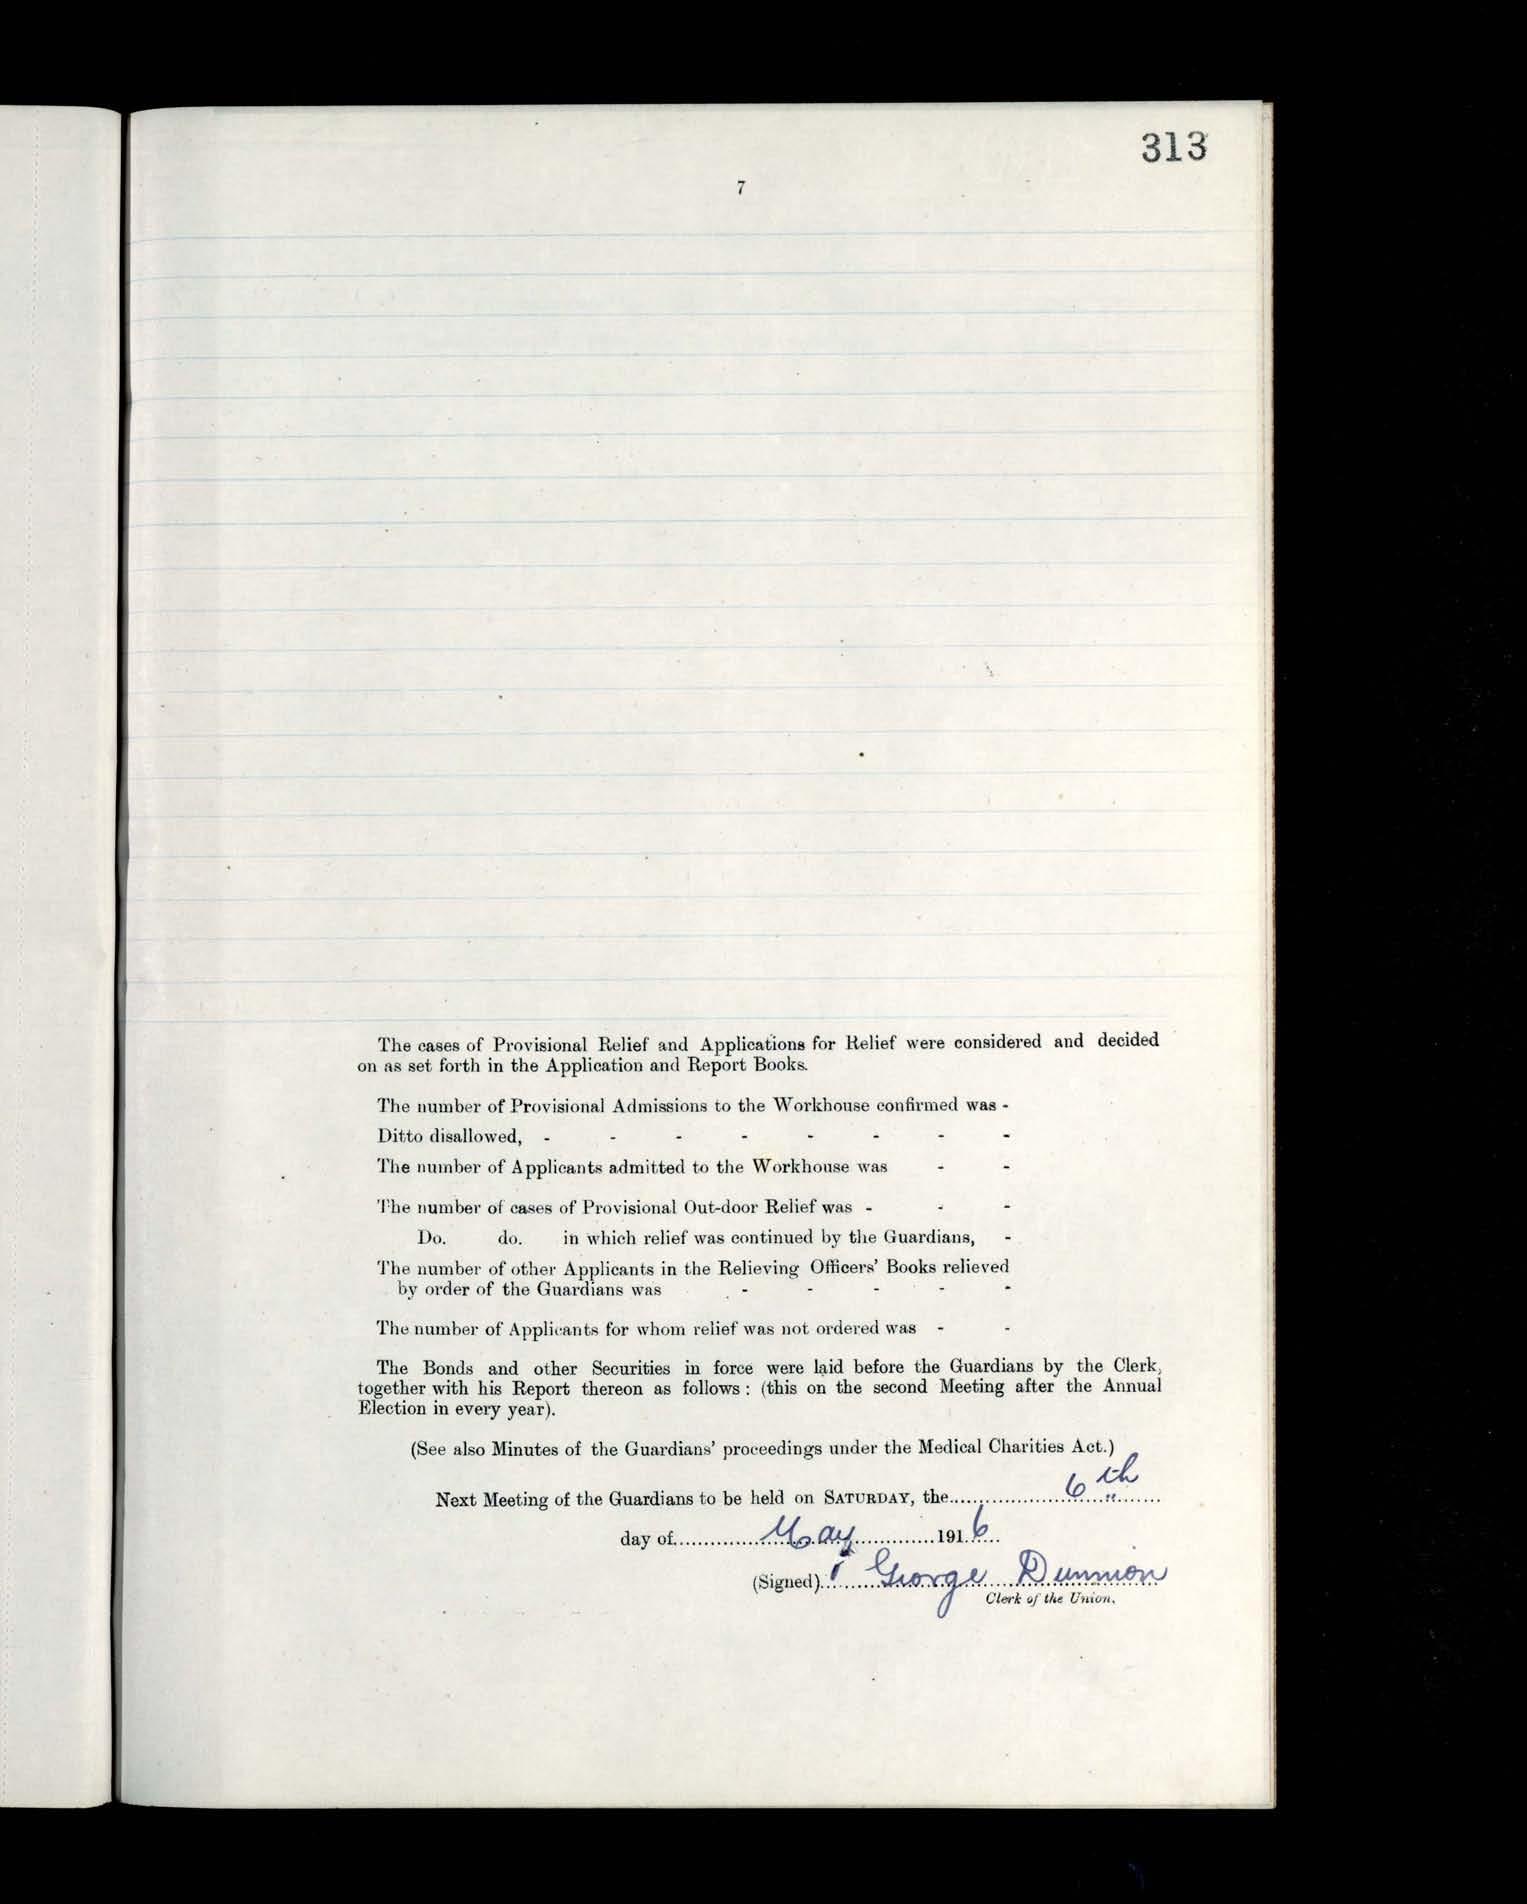 313
7
The cases of Provisional Relief and Applications for Relief were considered and decided
on as set forth in the Application and Report Books.
The number of Provisional Admissions to the Workhouse confirmed was -
Ditto disallowed, - - - - - - - -
The number of Applicants admitted to the Workhouse was - -
The number of cases of Provisional Out-door Relief was - - -
Do. do. in which relief was continued by the Guardians, -
The number of other Applicants in the Relieving Officers' Books relieved
by order of the Guardians was - - - - -
The number of Applicants for whom relief was not ordered was - -
The Bonds and other Securities in force were laid before the Guardians by the Clerk,
together with his Report thereon as follows : (this on the second Meeting after the Annual
Election in every year).
(See also Minutes of the Guardians' proceedings under the Medical Charities Act.)
Next Meeting of the Guardians to be held on SATURDAY, the 6th
day of May 1916
(Signed) George Dunnion
Clerk of the Union.